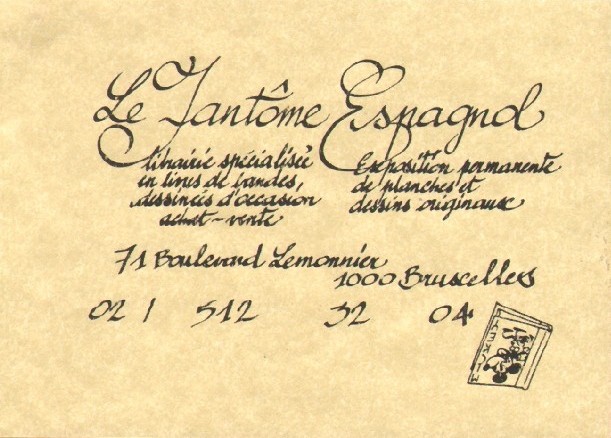 Le Fantôme Espagnol
librairie spécialisée
en livres de bandes,
dessinées d'occasion
achat-vente
Exposition permanente
de planches et
dessins originaux
71 Boulevard Lemonnier
1000 Bruxelles
02 / 512 32 04